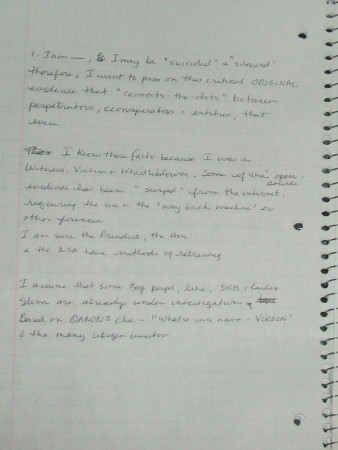 1. I am —, & I may be "suicided" & "silenced"
therefore, I want to pass on this critical ORIGINAL
evidence that "connects-the-dots" between
perpetrators, coconspirators & entities, that
even
I know these facts because I was a
Witness, Victim & Whistleblower. Some of the open source
evidence has been "surped" from the internet,
requiring the use of the "way back machine" or
other forensic
I am sure the President, the Hon
& the NSA have methods of retrieving
I assume that some key perps, like, & Carlos
Slim are already under investigation
Based on QANON's clue - "What's in a name - VIRGIN"
& the many